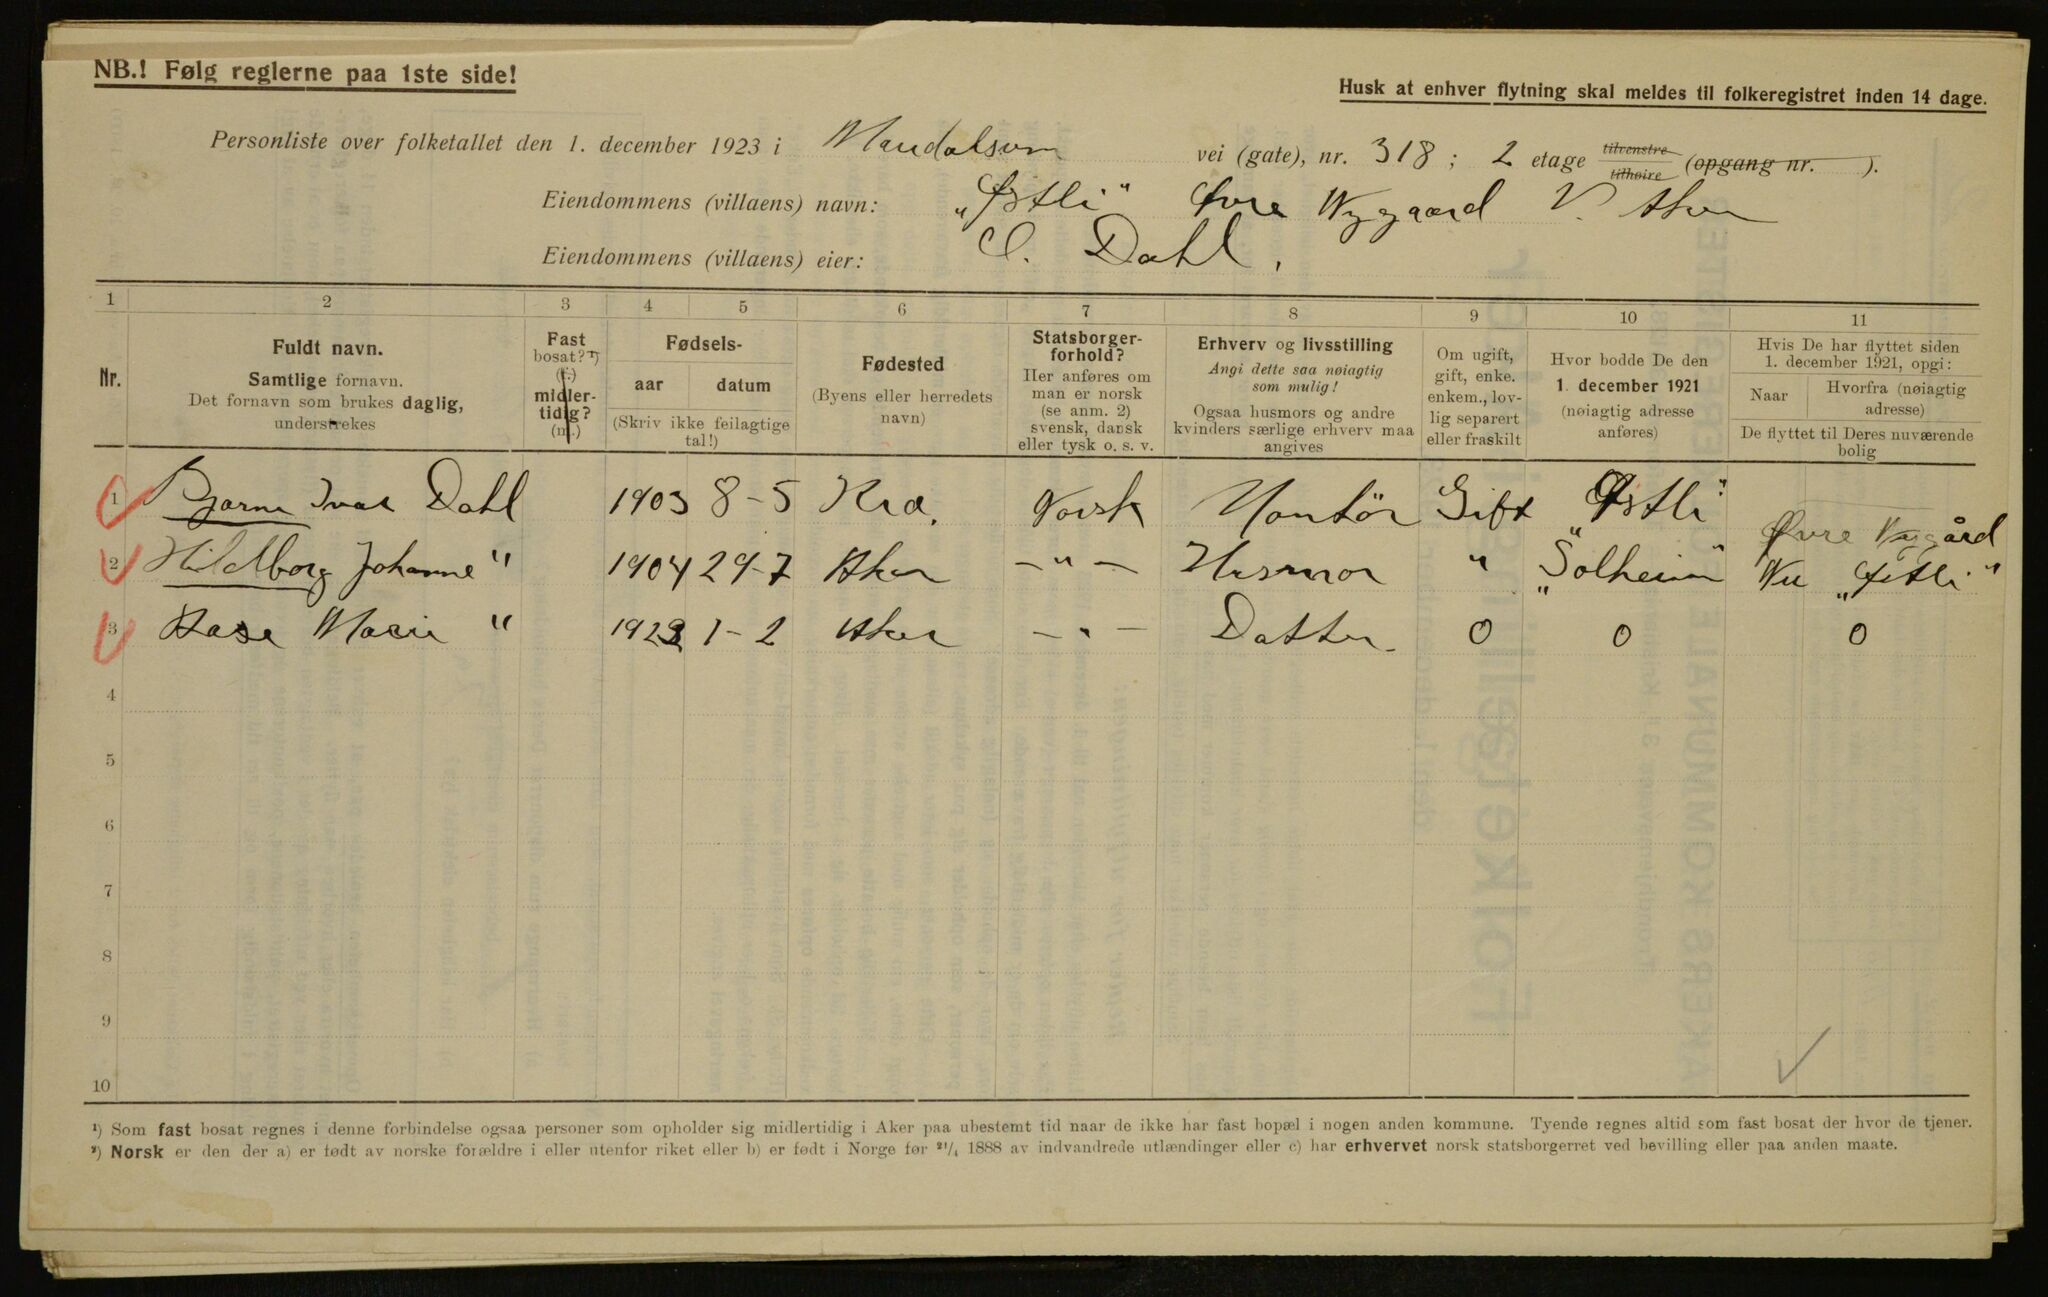 NB.! Følg reglerne paa 1ste side!
Husk at enhver flytning skal meldes til folkeregistret inden 14 dage.
Personliste over folketallet den 1. december 1923 i vei (gate), nr. 318; 2 etage tilvenstre tilhøire (opgang nr. ).
Eiendommens (villaens) navn: „Østli" Øvre Nygaard V. Aker
Eiendommens (villaens) eier: Dahl,
1 2 3 4 5 6 7 8 9 10 11
Nr.
Fuldt navn.
Samtlige fornavn.
Det fornavn som brukes daglig,
understrekes
Fast
bosat? ¹)
(f.)
midler-
tidig?
(m.)
Fødsels-
aar datum
(Skriv ikke feilagtige
tal!)
Fødested
(Byens eller herredets
navn)
Statsborger-
forhold?
Her anføres om
man er norsk
(se anm. 2)
svensk, dansk
eller tysk o. s. v.
Erhverv og livsstilling
Angi dette saa nøiagtig
som mulig!
Ogsaa husmors og andre
kvinders særlige erhverv maa
angives
Om ugift,
gift, enke.
enkem., lov-
lig separert
eller fraskilt
Hvor bodde De den
1. december 1921
(nøiagtig adresse
anføres)
Hvis De har flyttet siden
1. december 1921, opgi:
Naar Hvorfra (nøiagtig
adresse)
De flyttet til Deres nuværende
bolig
1 Bjarne Ivar Dahl 1903 8-5 Kra. Norsk Kontör Gift „Østli"
Øvre Nygård
2 Hildborg Johanne " 1904 29-7 Aker -"- Husmor " „Solheim" Nu „Østli"
3 Aase Marie " 1923 1-2 Aker -"- Datter 0 0 0
4
5
6
7
8
9
10
¹) Som fast bosat regnes i denne forbindelse ogsaa personer som opholder sig midlertidig i Aker paa ubestemt tid naar de ikke har fast bopæl i nogen anden kommune. Tyende regnes altid som fast bosat der hvor de tjener.
²) Norsk er den der a) er født av norske forældre i eller utenfor riket eller b) er født i Norge før ²¹/₄ 1888 av indvandrede utlændinger eller c) har erhvervet norsk statsborgerret ved bevilling eller paa anden maate.